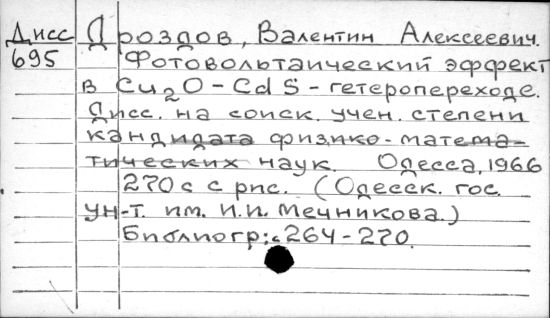 Дисс Дроздов, Валентин Алексеевич.
695 Фотовольтаический эффект
в Cu2O - CdS - гетеропереходе.
Дисс. на соиск. учен. степени
кандидата физико-матема-
тических наук. Одесса, 1966
270 с с рис. (Одесск. гос.
ун-т. им. И.И. Мечникова.)
Библиогр: с 264-270.